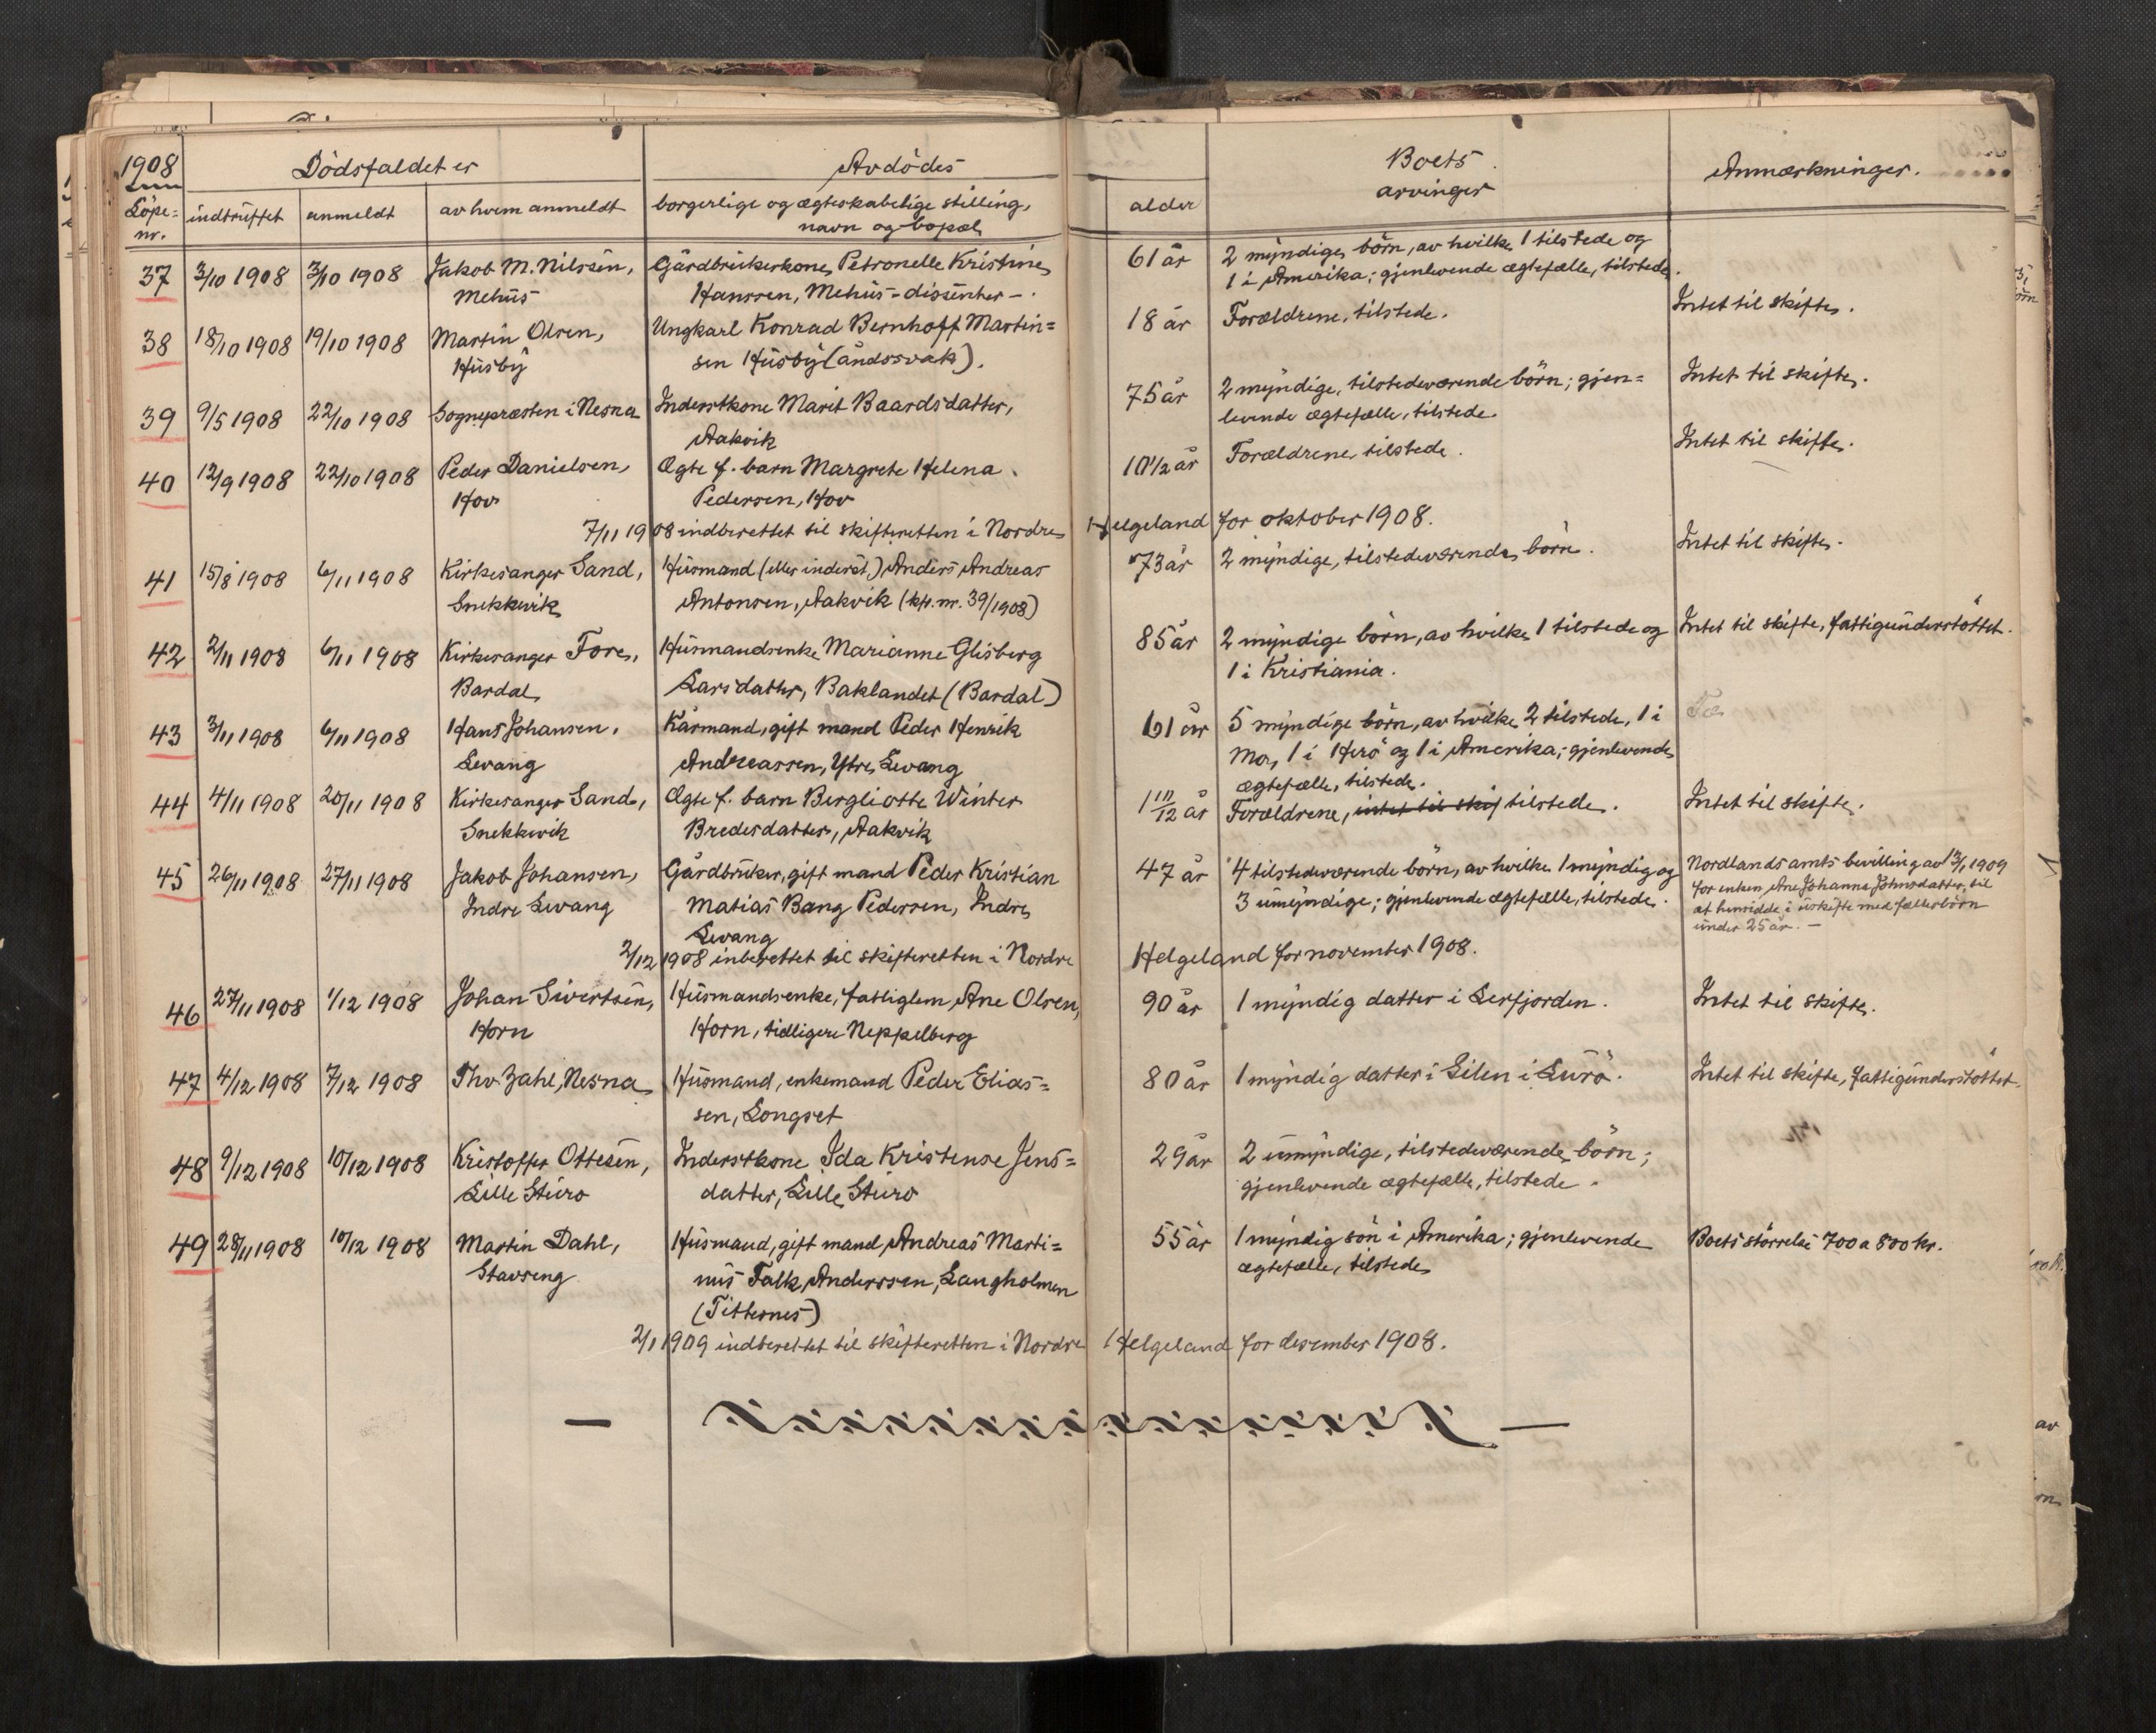 1908
Dödsfaldet er
Avdödes
Boets
arvinger
Anmærkninger.
Löpe=
nr.
indtruffet
anmeldt
av hvem anmeldt
borgerlige og ægteskabelige stilling,
navn og bopæl
alder
37 3/10 1908 3/10 1908 Jakob M. Nilsen, Gårdbrukerkone Petronelle Kristine 61 år 2 myndige börn, av hvilke 1 tilstede og
Mehus Hanssen, Mehus - dissenter - . 1 i Amerika; gjenlevende ægtefælle, tilstede.
38 18/10 1908 19/10 1908 Martin Olsen, Ungkarl Konrad Bernhoff Martin= 18 år Forældrene, tilstede. Intet til skifte.
Husby sen Husby (åndssvak).
39 9/5 1908 22/10 1908 Sognepræsten i Nesna Inderstkone Marit Baardsdatter, 75 år 2 myndige, tilstedeværende börn; gjen= Intet til skifte.
Aakvik levende ægtefælle, tilstede.
40 12/9 1908 22/10 1908 Peder Danielsen, Ægte f. barn Margrete Helena 10 1/2 år Forældrene, tilstede. Intet til skifte.
Hov Pedersen, Hov
7/11 1908 indberettet til skifteretten i Nordre Helgeland for oktober 1908.
41 15/8 1908 6/11 1908 Kirkesanger Sand, Husmand (eller inderst,) Anders Andreas 73 år 2 myndige, tilstedeværende börn. Intet til skifte.
Snekkevik Antonsen, Aakvik (kfr. nr. 39/1908)
42 2/11 1908 6/11 1908 Kirkesanger Fore, Husmandsenke Marianne Glisberg 85 år 2 myndige börn, av hvilke 1 tilstede og Intet til skifte, fattigunderstöttet.
Bardal Larsdatter, Baklandet (Bardal) 1 i Kristiania.
43 3/11 1908 6/11 1908 Hans Johansen, Kårmand, gift mand Peder Henrik 61 år 5 myndige börn, av hvilke 2 tilstede, 1 i
Levang Andreassen, Ytre Levang Mo, 1 i Herö og 1 i Amerika; gjenlevende
ægtefælle, tilstede.
44 4/11 1908 20/11 1908 Kirkesanger Sand, Ægte f. barn Bergliotte Winter 1 10/12 år Forældrene, intet til skif tilstede. Intet til skifte.
Snekkevik Bredesdatter, Aakvik
45 26/11 1908 27/11 1908 Jakob Johansen, Gårdbruker, gift mand Peder Kristian 47 år 4 tilstedeværende börn, av hvilke 1 myndig og Nordlands amts bevilling av 13/1 1909
Indre Levang Matias Bang Pedersen, Indre 3 umyndige; gjenlevende ægtefælle, tilstede. for enken, Ane Johanna Johnsdatter, til
Levang at hensidde i uskifte med fællesbörn
under 25 år. -
2/12 1908 inberettet til skifteretten i Nordre Helgeland for november 1908.
46 27/11 1908 1/12 1908 Johan Sivertsen, Husmandsenke, fattiglem, Ane Olsen, 90 år 1 myndig datter i Leirfjorden. Intet til skifte.
Horn Horn, tidligere Neppelberg
47 4/12 1908 7/12 1908 Thv. Zahl, Nesna Husmand, enkemand Peder Elias= 80 år 1 myndig datter i Silen i Lurö. Intet til skifte, fattigunderstöttet.
sen, Longset
48 9/12 1908 10/12 1908 Kristoffer Ottesen, Inderstkone Ida Kristense Jens= 29 år 2 umyndige, tilstedeværende börn;
Lille Sturo datter, Lille Sturo gjenlevende ægtefælle, tilstede.
49 28/11 1908 10/12 1908 Martin Dahl, Husmand, gift mand, Andreas Marti= 55 år 1 myndig sön i Amerika; gjenlevende Boets störrelse 700 a 800 kr.
Stavseng nus Falk Anderssen, Langholmen ægtefælle, tilstede
(Titternes)
2/1 1909 indberettet til skifteretten i Nordre Helgeland for desember 1908.